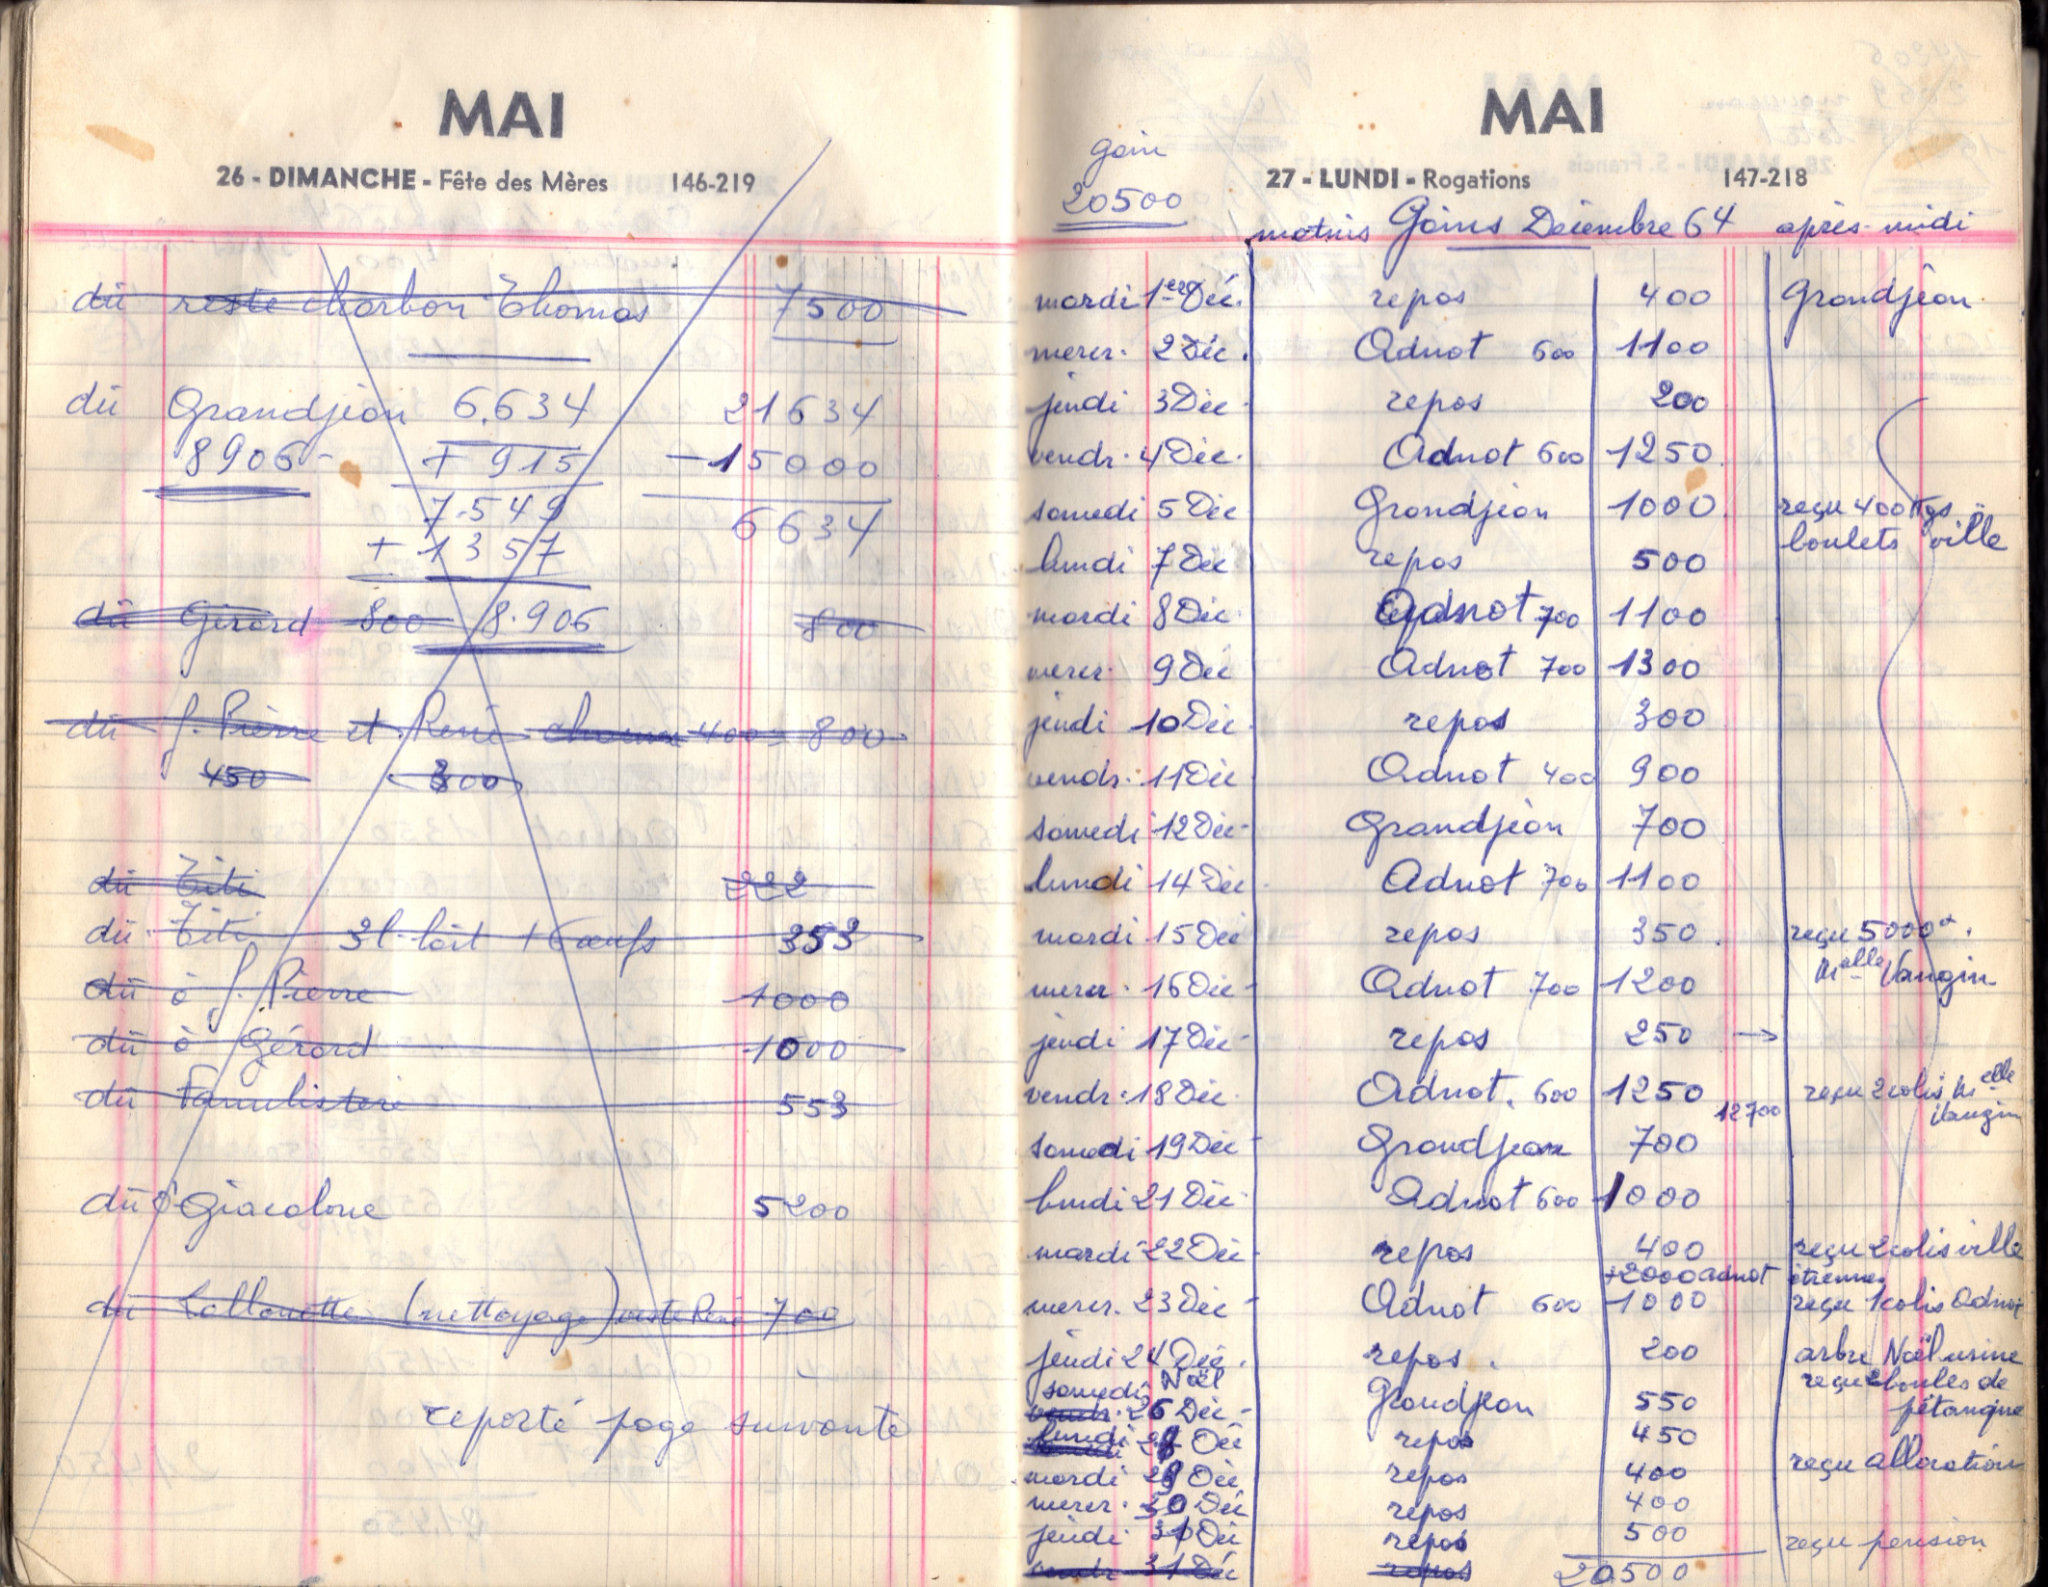 MAI
26 - DIMANCHE - Fête des Mères 146-219
dû reste charbon Thomas 7500
dû Grandjean 6.634 21634
8906- + 915 - 15000
7.549 6634
+ 1357
dû Girard 800 8.906 800
dû J. Pierre et René 400 = 800
450 300
dû Titi 222
dû Titi 3 l. lait + 6 œufs 353
dû à J. Pierre 1000
dû à Gérard 1000
dû Familistère 553
dû à Giacolone 5200
dû Lallouette (nettoyage) veste René 700
reporté page suivante
MAI
gain
20500
27 - LUNDI - Rogations 147-218
matins Gains Décembre 64 après-midi
mardi 1er Déc. repos 400 Grandjean
mercr. 2 Déc. Adnot 600 1100
jeudi 3 Déc. repos 200
vendr. 4 Déc. Adnot 600 1250
samedi 5 Déc Grandjean 1000 reçu 400 Kgs
boulets ville
lundi 7 Déc repos 500
mardi 8 Déc. Adnot 700 1100
mercr. 9 Déc Adnot 700 1300
jeudi 10 Déc. repos 300
vendr. 11 Déc Adnot 400 900
samedi 12 Déc- Grandjean 700
lundi 14 Déc. Adnot 700 1100
mardi 15 Déc repos 350. reçu 5000
Melle Vaugin
mercr. 16 Déc- Adnot 700 1200
jeudi 17 Déc- repos 250 →
vendr. 18 Déc. Adnot. 600 1250 12700 reçu 2 colis Melle
Vaugin
samedi 19 Déc- Grandjean 700
lundi 21 Déc. Adnot 600 1000
mardi 22 Déc- repos 400 reçu 2 colis ville
+2000 adnot étrennes
mercr. 23 Déc- Adnot 600 1000 reçu 1 colis Adnot
jeudi 24 Déc. repos. 200 arbre Noël usine
Noël reçu 2 boules de
samedi vendr. 26 Déc- Grandjean 550 pétanque
lundi 28 Déc repos 450
mardi 29 Déc repos 400 reçu allocations
mercr. 30 Déc repos 400
jeudi 31 Déc repos 500 reçu pension
vendr 31 Déc repos 20500